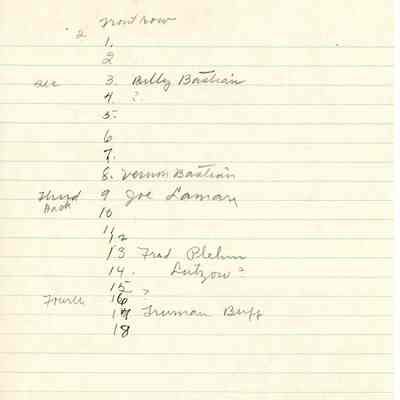 Front row
2 1.
2
sec 3. Billy Bastian
4. ?
5.
6
7.
8. Vernon Bastian
Third 9 Joe Lamarr
Back 10
11
12
13 Fred Plehn
14. Lutzow?
15 ?
Fourth 16
17 Truman Buff
18